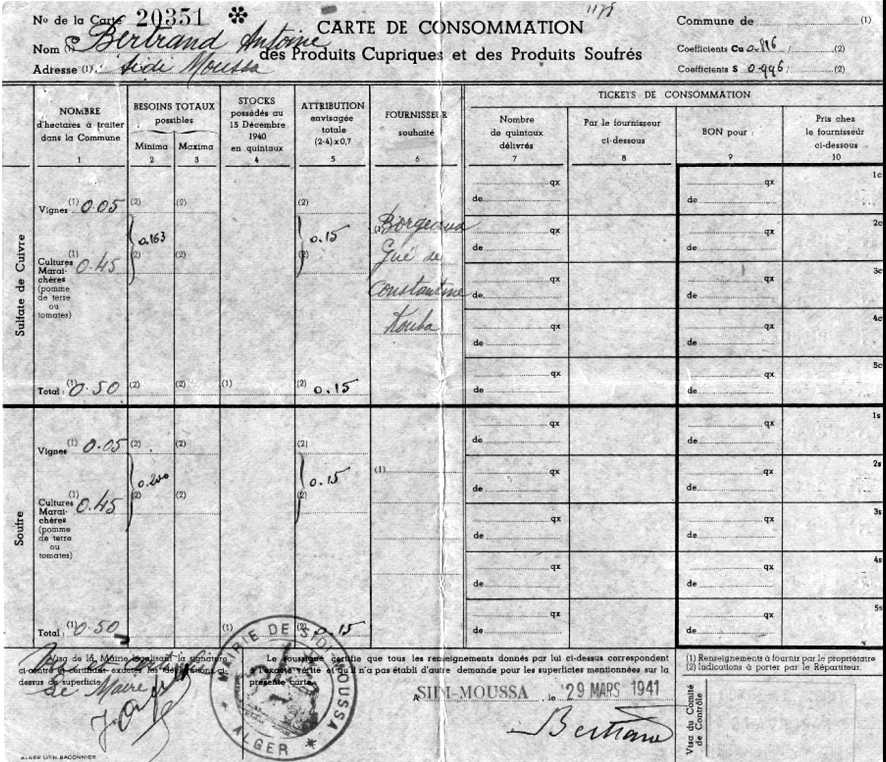 No de la Carte 20351 ✻
1175
CARTE DE CONSOMMATION
des Produits Cupriques et des Produits Soufrés
Nom (1) Bertrand Antoine
Adresse (1). Sidi Moussa
Commune de (1)
Coefficients Cu 0.816 (2)
Coefficients S 0.996 (2)
NOMBRE d'hectares à traiter dans la Commune 1
BESOINS TOTAUX possibles
Minima 2
Maxima 3
STOCKS possédés au 15 Décembre 1940 en quintaux 4
ATTRIBUTION envisagée totale (2-4) x 0,7 5
FOURNISSEUR souhaité 6
TICKETS DE CONSOMMATION
Nombre de quintaux délivrés 7
Par le fournisseur ci-dessous 8
BON pour : 9
Pris chez le fournisseur ci-dessous 10
Sulfate de Cuivre
Vignes (1) 0.05 (2) (2) (2)
0.163 0.15
Cultures Maraichères (pomme de terre ou tomates) (1) 0.45 (2) (2) (2)
(1) Borgeaud
Gué de
Constantine
Kouba
Total : (1) 0.50 (2) (2) (1) (2) 0.15
qx qx 1c
de de
qx qx 2c
de de
qx qx 3c
de de
qx qx 4c
de de
qx qx 5c
de de
Soufre
Vignes (1) 0.05 (2) (2) (2)
0.200 0.15 (1)
Cultures Maraichères (pomme de terre ou tomates) (1) 0.45 (2) (2)
Total : (1) 0.50 (1) (2) 0.15
qx qx 1s
de de
qx qx 2s
de de
qx qx 3s
de de
qx qx 4s
de de
qx qx 5s
de de
Visa de la Mairie légalisant la signature
ci-contre et certifiant exactes les déclarations ci-
dessus superficie
Le Maire
MAIRIE DE SIDI MOUSSA
* ALGER *
Le soussigné certifie que tous les renseignements donnés par lui ci-dessus correspondent
à l'exacte vérité et qu'il n'a pas établi d'autre demande pour les superficies mentionnées sur la
présente Carte.
A SIDI-MOUSSA le 29 MARS 1941
Bertrand
(1) Renseignements à fournir par le propriétaire
(2) Indications à porter par le Répartiteur.
Visa du Comité de Contrôle
ALGER LITH. BACONNIER